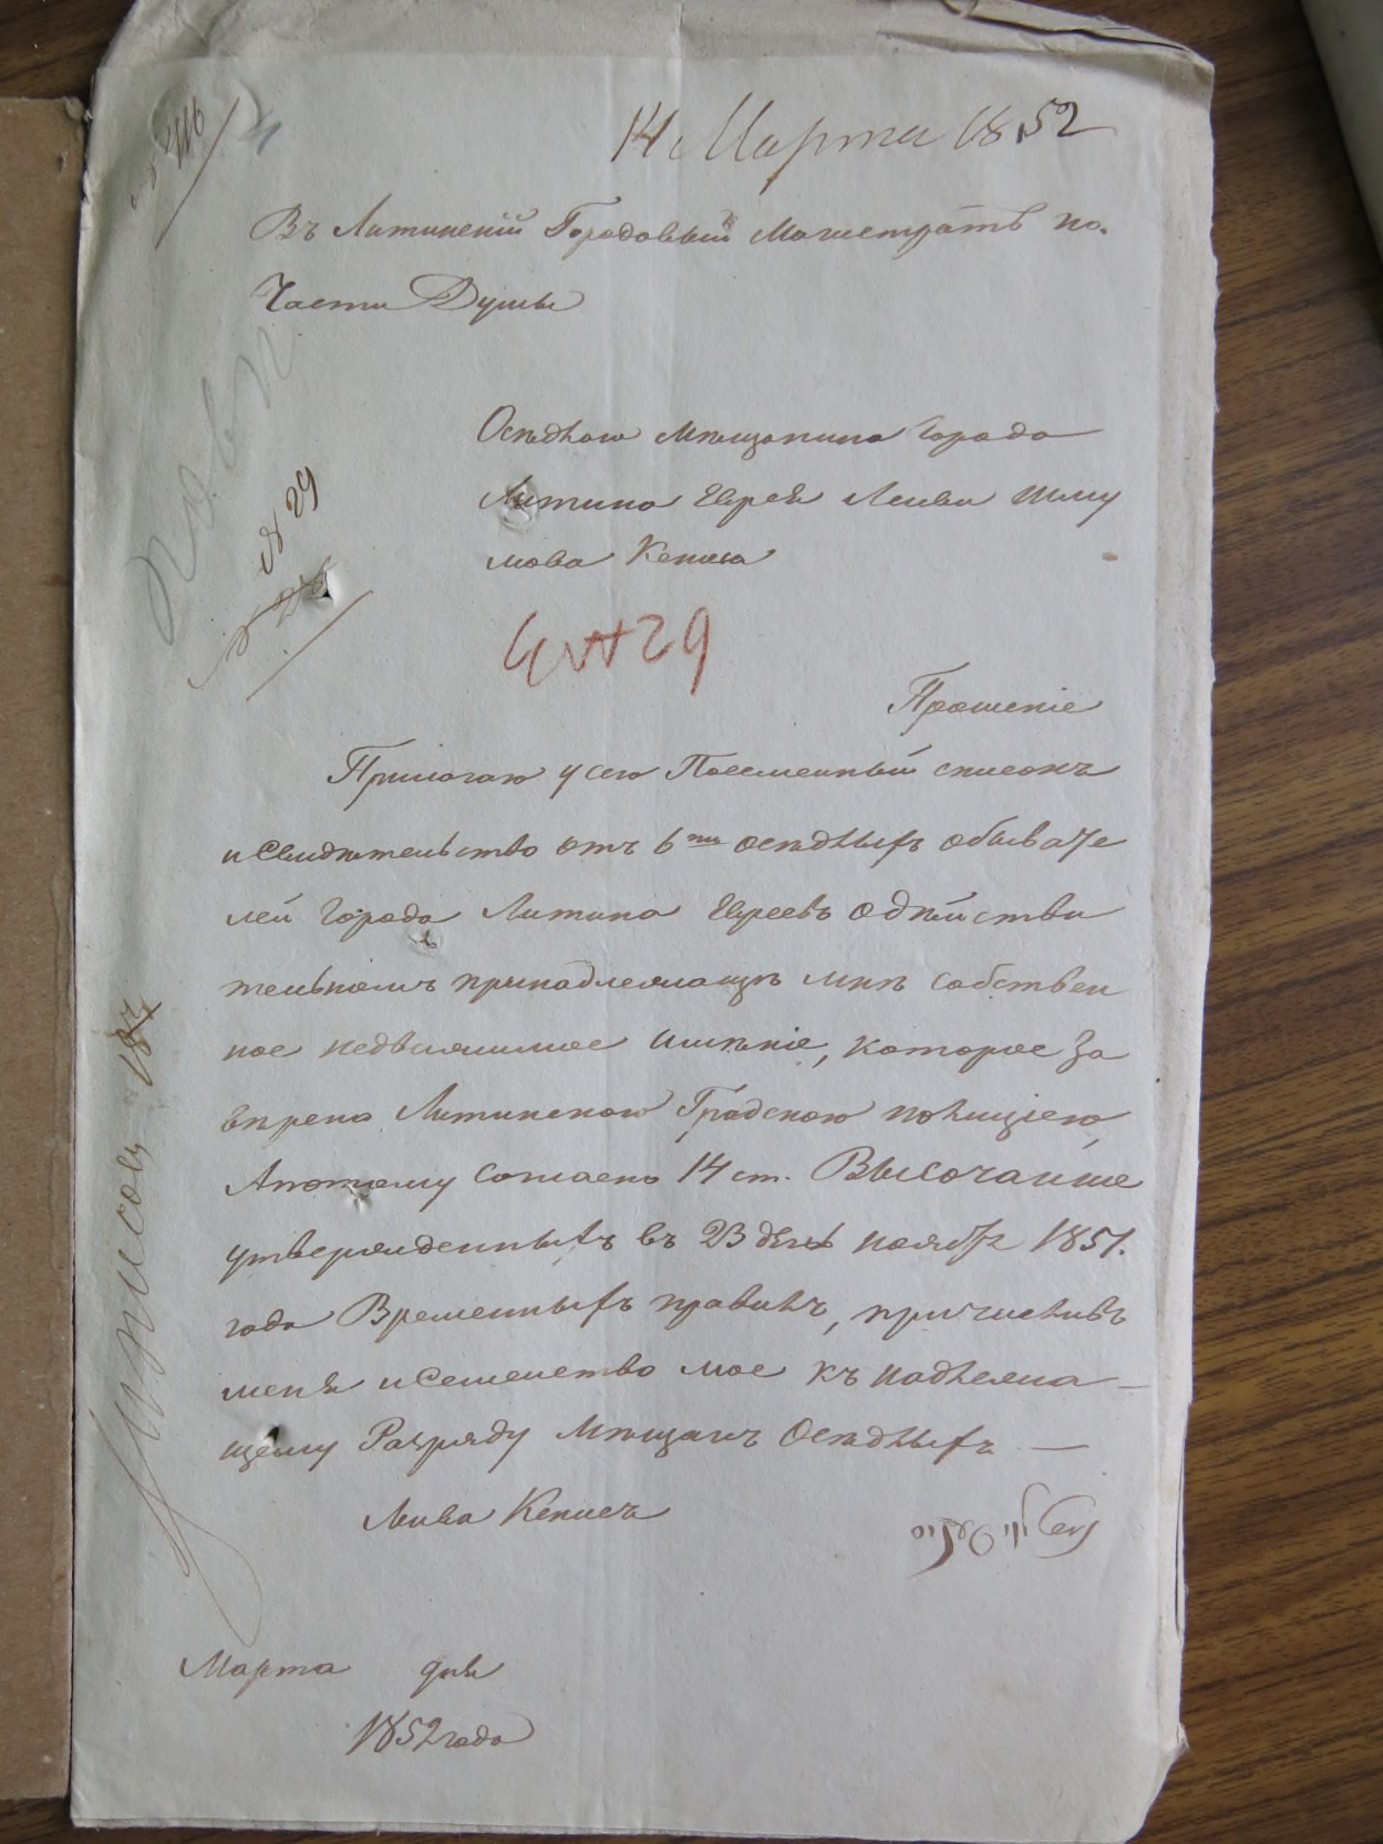 14 Марта 1852
Въ Литинскій Городовый Магистратъ по.
Части Думы
Осѣдлаго Мѣщанина города
Литина Еврея Лейви Шму
лова Кениса
№ 29
29
Прошеніе
Прилогаю у сего Посемейный списокъ
и Свидѣтельство отъ 6ти осѣдлыхъ обывате
лей города Литина Евреевъ о дѣйстви
тельномъ принадлежащѣ мнѣ собствен
ное недвижимое имѣніе, которое за
вѣрено Литинскою Градскою полициею,
А потому согласно 14 ст. Высочайше
утвержденныхъ въ 23 день ноября 1851.
года Временныхъ правилъ, причисливъ
меня и Семейство мое къ подлежа—
щему Разряду Мѣщанъ Осѣдлыхъ —
Лейва Кенисъ
Марта дня
1852 года